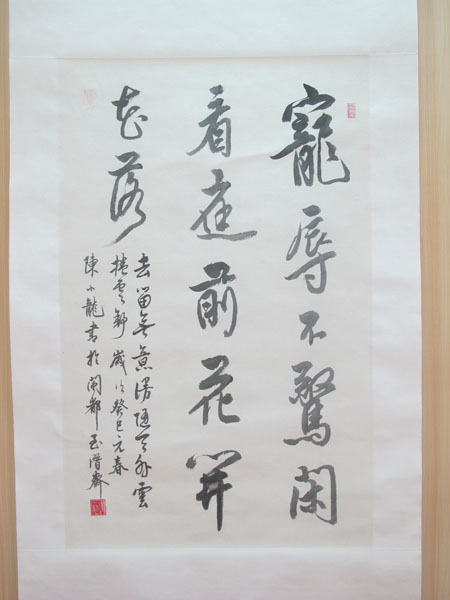 寵辱不驚閑
看庭前花開
花落
去留無意漫隨天外雲
捲雲舒 歲次癸巳元春
陳小龍書於閩都玉潛齋